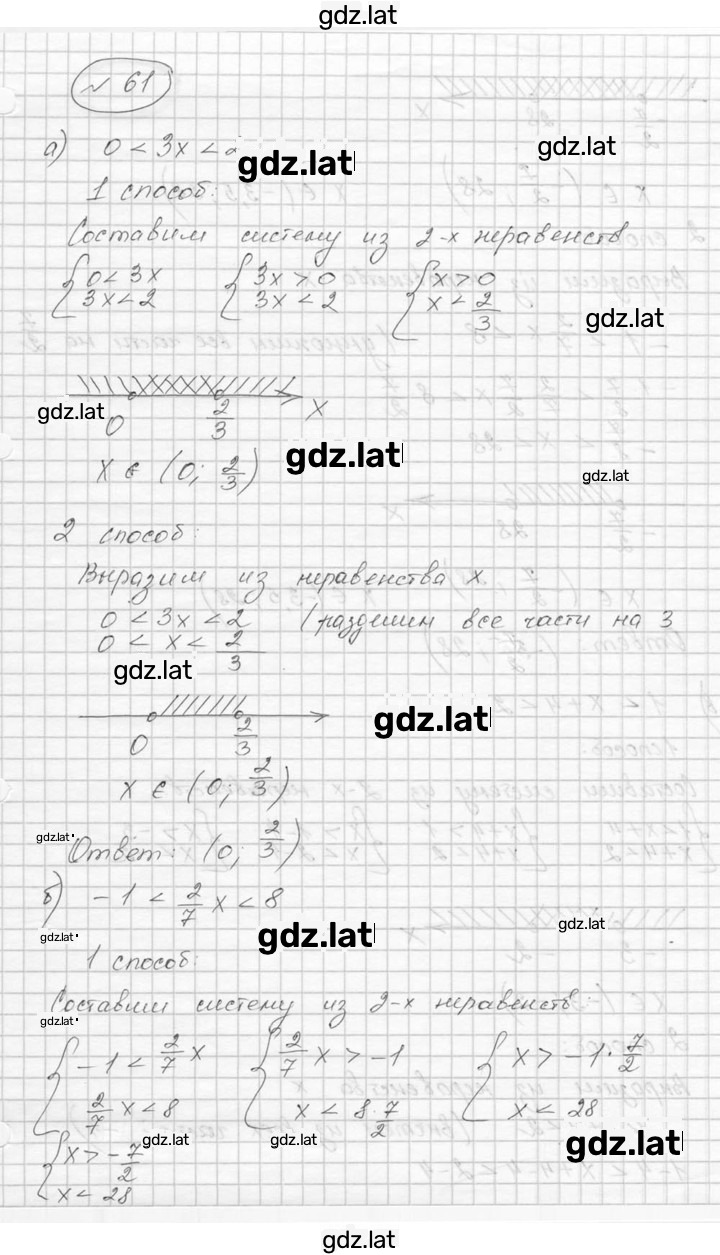 gdz.lat
№ 61
а) 0 < 3x <
gdz.lat
gdz.lat
1 способ:
Составим систему из 2-х неравенств
{0 < 3x {3x > 0 {x > 0
{3x < 2 {3x < 2 {x < 2/3
gdz.lat
gdz.lat
0 2/3 x
gdz.lat
x ∈ (0; 2/3)
gdz.lat
2 способ:
Выразим из неравенства x
0 < 3x < 2 /разделим все части на 3
0 < x < 2/3
gdz.lat
gdz.lat
0 2/3
x ∈ (0; 2/3)
gdz.lat
Ответ: (0; 2/3)
б) -1 < 2/7 x < 8
gdz.lat
gdz.lat
gdz.lat
1 способ:
Составим систему из 2-х неравенств
gdz.lat
{-1 < 2/7 x {2/7 x > -1 {x > -1 · 7/2
{2/7 x < 8 {x < 8·7/2 {x < 28
gdz.lat
gdz.lat
gdz.lat
{x > -7/2
{x < 28
gdz.lat